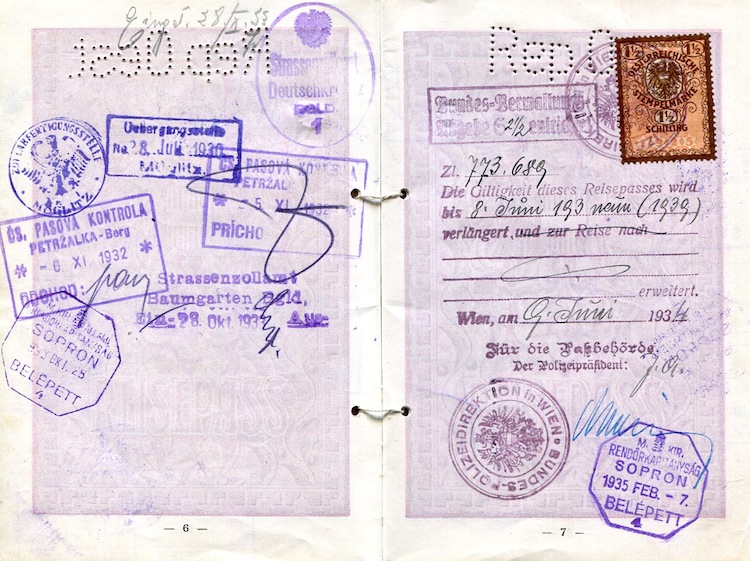 Eing. 28/X. 33
Strassenzollamt
Deutschkr
BGLD
1
ZOLLABFERTIGUNGSSTELLE
MÜGLITZ
Uebergangsstelle
No 28. Juli 1930
Müglitz
ČS. PASOVÁ KONTROLA
PETRŽALKA
- 5 XI. 1932 *
PŘÍCHO
ČS. PASOVÁ KONTROLA
PETRŽALKA-Berg
* - 6 XI. 1932 *
ODCHOD:
Strassenzollamt
Baumgarten Bgld,
Ein- 28. Okt. 193 Aus-
SOPRON
BELÉPETT
4
— 6 —
Rep.Ö
1½ 1½
ÖSTERREICHISCHE
STEMPELMARKE
1½
SCHILLING
Bundes-Verwaltungs
Abgabe S 2½ entrichtet
Zl. 773.689
Die Giltigkeit dieses Reisepasses wird
bis 8. Juni 193 neun (1939)
verlängert, und zur Reise nach
erweitert.
Wien, am 9. Juni 1934
Für die Paßbehörde.
Der Polizeipräsident:
J.A.
BUNDES-POLIZEIDIREKTION in WIEN
M. KIR.
RENDŐRKAPITÁNYSÁG
SOPRON
1935 FEB. - 7.
BELÉPETT
4
— 7 —